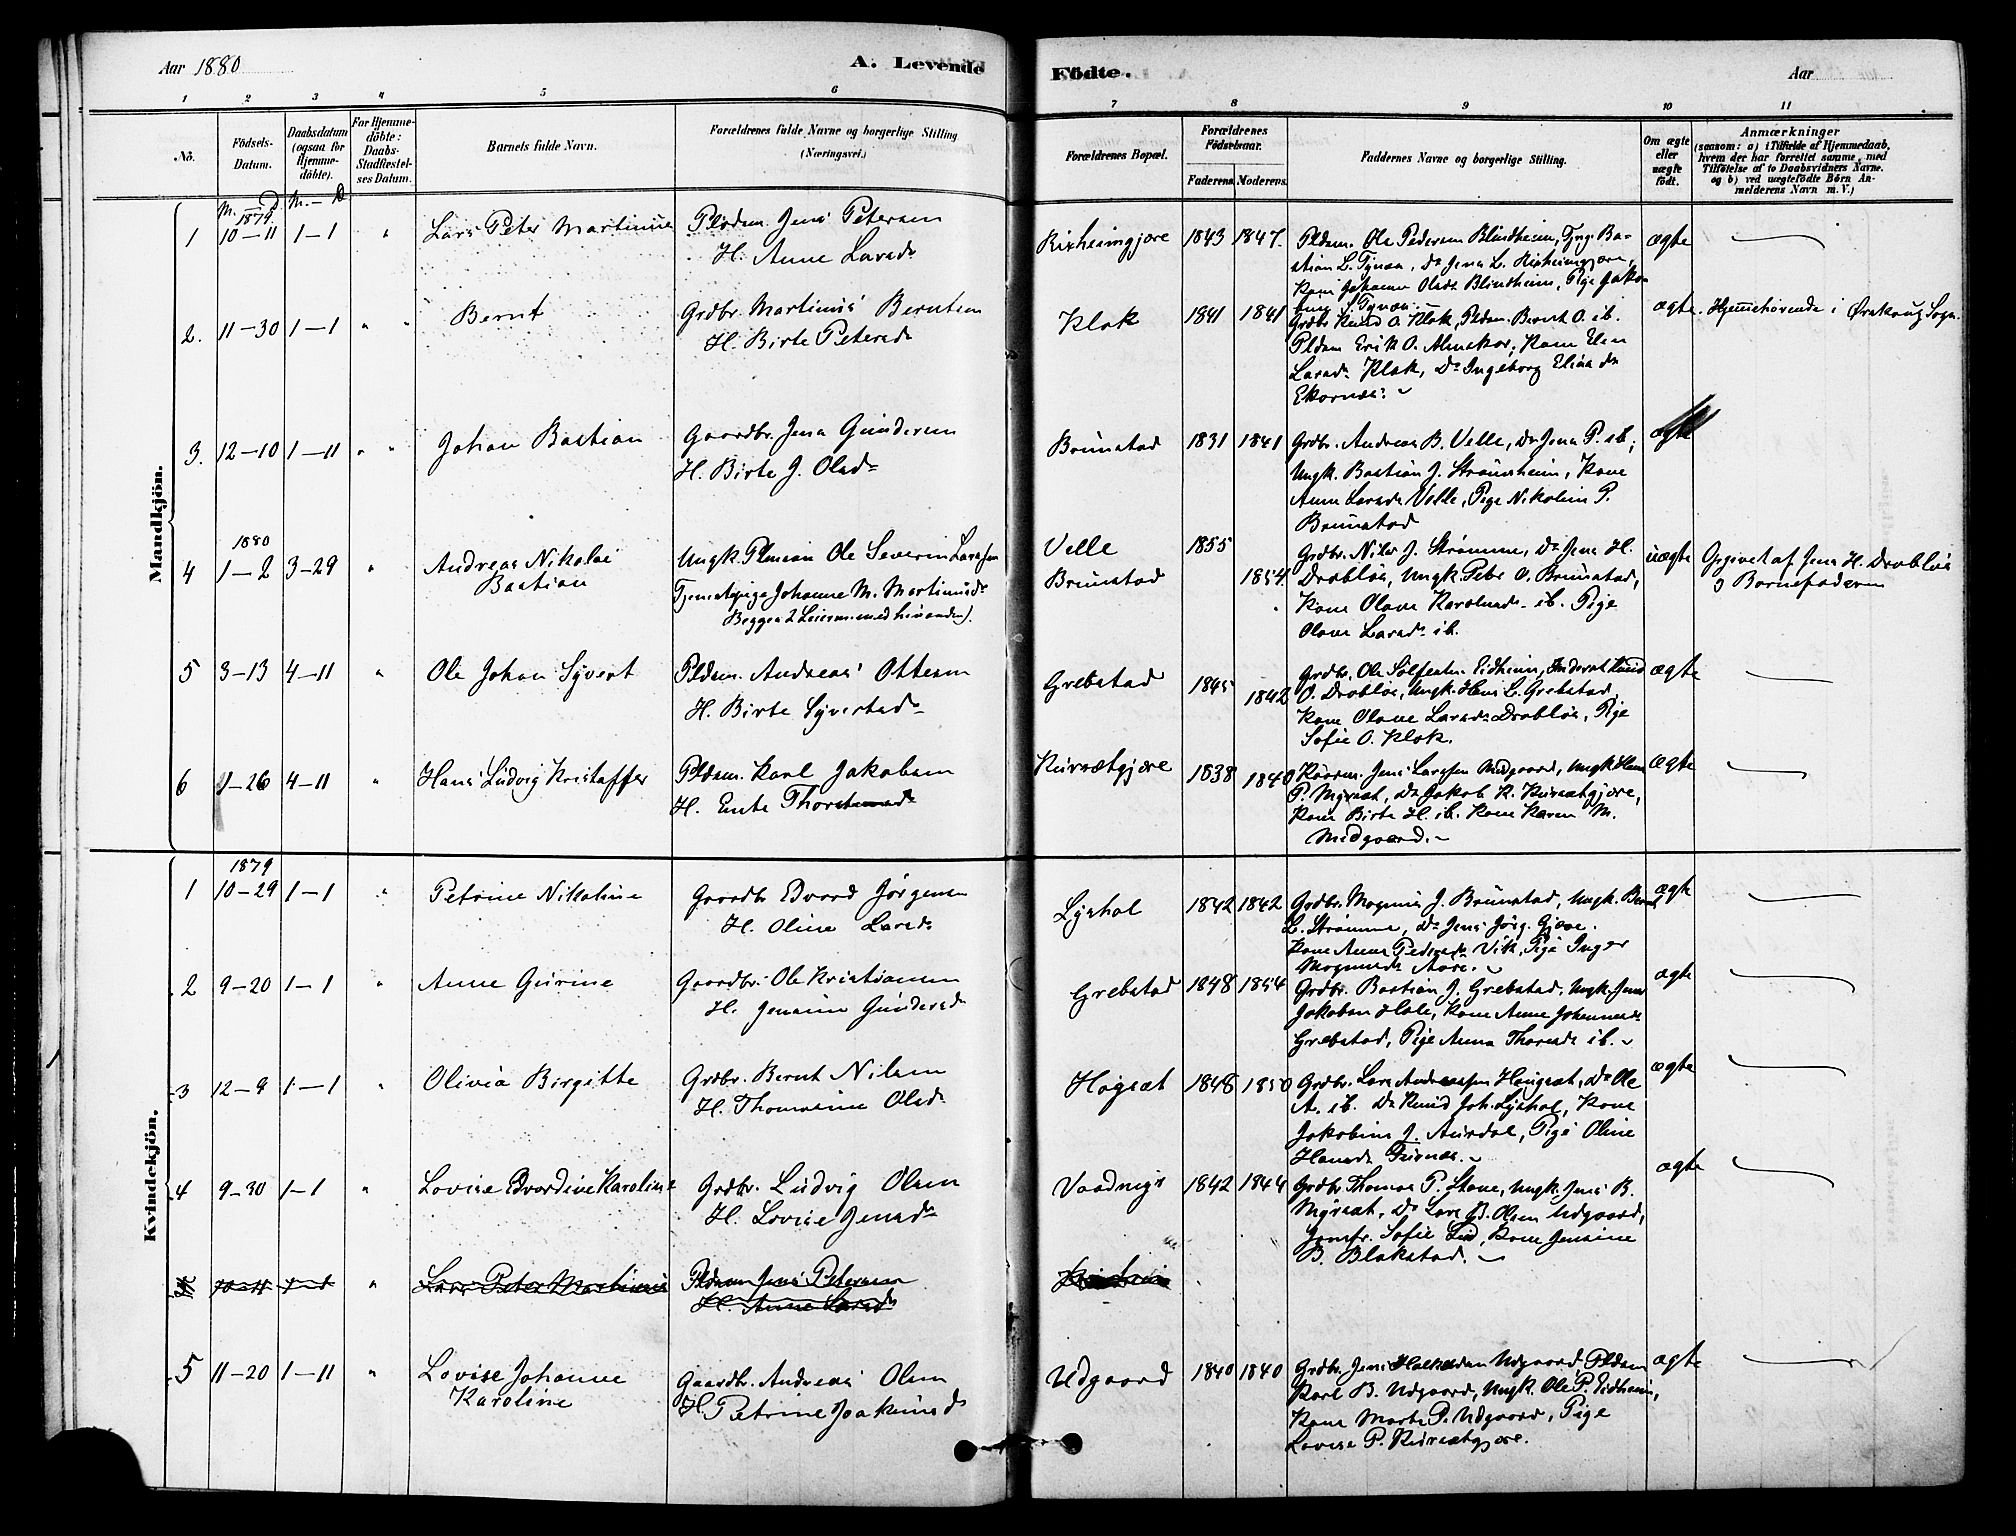 Aar 1880
A. Levende
Födte.
Aar
1 2 3 4 5 6 7 8 9 10 11
No.
Födsels-
Datum.
Daabsdatum
(ogsaa for
Hjemme-
döbte).
For Hjemme-
döbte:
Daabs-
Stadfæstel-
ses Datum.
Barnets fulde Navn.
Forældrenes fulde Navne og borgerlige Stilling
(Næringsvei.)
Forældrenes Bopæl.
Forældrenes
Födselsaar.
Faderens. Moderens.
Faddernes Navne og borgerlige Stilling.
Om ægte
eller
uægte
födt.
Anmærkninger
(saasom: a) i Tilfælde af Hjemmedaab,
hvem der har forrettet samme, med
Tilföielse af to Daabsvidners Navne.
og b) ved uægtefödte Börn An-
melderens Navn m. V.)
Mandkjön.
M. — D. M. — D
1879
1 10—11 1—1 " Lars Peter Martinus
Pladsm. Jens Petersen
H. Anne Larsd.
Kirheimgjære 1843 1847.
Pldsm. Ole Pedersen Blindheim, Tjng. Ba-
stian L. Tynæs, Do Jens L. Kirheimgjære,
Kone Johanne Olsdr Blindheim, Pige Jako-
bine S. Tynæs.
ægte
2. 11—30 1—1 " " Bernt
Grdbr. Martinus Berntsen
H. Birte Petersd.
Klok 1841 1841
Grdbr Knud O. Klok, Pldsm. Bernt O. ib.
Pldsm Erik O. Almekor, Kone Elen
Larsd. Klok, Do Ingeborg Elias dr
Ekornæs.
ægte. Hjemmehørende i Ørskoug Sogn.
3. 12—10 1—11 " " Johan Bastian
Gaardbr. Jens Gundersen
H. Birte J. Olsd.
Brunstad 1831 1841
Grdbr. Andreas B. Velle, Do Jens P. ib,
Ungk. Bastian J. Straumsheim, Kone
Anne Larsdr Velle, Pige Nikoline P.
Brunstad
ægte
1880
4 1—2 3—29 " Andreas Nikolai
Bastian
Ungk. Pldmsøn Ole Severin Larssen
Tjenestepige Johanne M. Martinusd.
Begges 2 Leiermaal med hinanden).
Velle
Brunstad 1855 1854.
Grdbr. Nils J. Strømme, Do Jens H.
Drabløs, Ungk. Peter O. Brunstad,
Kone Olave Karolusd. ib. Pige
Olave Larsd. ib.
uægte Opgivet af Jens H. Drabløs
og Barnefaderen
5 3—13 4—11 " Ole Johan Syvert
Pldsm. Andreas Ottesen
H. Birte Syvertsd.
Grebstad 1845 1842
Grdbr. Ole Sølfestsn Eidheim, Inderst Knud
O. Drabløs, Ungk. Hans L. Grebstad,
Kone Olave Larsdr Drabløs, Pige
Sofie O. Klok.
ægte
6 1—26 4—11 " Hans Ludvig Kristoffer
Pldsm. Karl Jakobsen
H. Ente Thorstensd.
Kursætgjære 1838 1840
Jens Larssen Midgaard, Ungk. Hans
P. Myrsæt, Do Jakob K. Kursætgjære,
Kone Birte H. ib. Kone Karen M.
Midgaard.
ægte
Kvindekjön.
1879
1 10—29 1—1 " Petrine Nikoline
Gaardbr Edvard Jörgensen
H. Oline Larsd.
Lyshol 1842 1842
Grdbr. Magnus J. Brunstad, Ungk. Bernt
L. Strømme, Do Jens Jörg. Gjære.
Kone Anne Pedersdr Vik, Pige Inger
Magnusdr Aure.
ægte
2 9—20 1—1 " Anne Gurine
Gaardbr. Ole Kristiansen
H. Jensine Gundersd.
Grebstad 1848 1854
Grdbr. Bastian J. Grebstad, Ungk. Jens
Jakobsen Hole, Kone Anne Johannesdr
Grebstad, Pige Anna Thoresdr ib.
ægte
3 12—9 1—1 " Olivia Birgitte
Grdbr. Bernt Nilsen
H. Thomasine Olsd.
Hogsæt 1848 1850
Grdbr. Lars Andreassen Haugsæt, Do Ole
A. ib. Do Knud Joh. Lyshol, Kone
Jakobine J. Aursdal, Pige Oline
Hansdr Tusnæs.
ægte
4 9—30 1—1 " Lovise Edvardine Karoline
Grdbr. Ludvig Olsen
H. Lovise Jensdr
Vaadnigs 1842 1844
Grdbr. Thomas P. Stave, Ungk. Jens B.
Myrsæt, Do Lars B. Olsen Udgaard,
Jomfr. Sofie Lid, Kone Jensine
B. Blakstad.
ægte
10—11 1—1 " Lars Peter Martinus
Pldsm Jens Petersen
H. Anne Larsd
5 11—20 1—11 " Lovise Johanne
Karoline
Gaardbr. Andreas Olsen
H. Petrine Joakimsd.
Udgaard 1840 1840
Grdbr. Jens Halkedsn Udgaard, Pldsm
Karl B. Udgaard, Ungk. Ole P. Eidheim,
Kone Marte P. Udgaard, Pige
Lovise P. Kursætgjære.
ægte